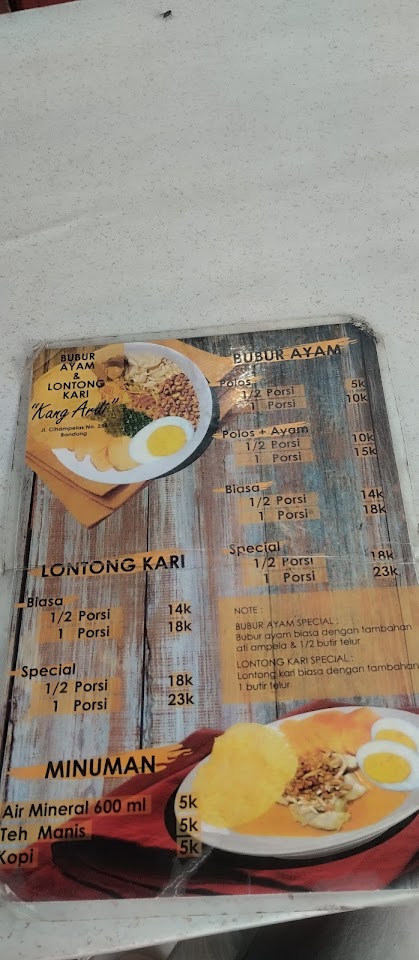 BUBUR
AYAM
&
LONTONG
KARI
"Kang Ardi"
Jl. Cihampelas No.
Bandung
BUBUR AYAM
Polos
1/2 Porsi 5k
1 Porsi 10k
Polos + Ayam
1/2 Porsi 10k
1 Porsi 15k
Biasa
1/2 Porsi 14k
1 Porsi 18k
Special
1/2 Porsi 18k
1 Porsi 23k
LONTONG KARI
Biasa
1/2 Porsi 14k
1 Porsi 18k
Special
1/2 Porsi 18k
1 Porsi 23k
NOTE :
BUBUR AYAM SPECIAL :
Bubur ayam biasa dengan tambahan
ati ampela & 1/2 butir telur
LONTONG KARI SPECIAL :
Lontong kari biasa dengan tambahan
1 butir telur
MINUMAN
Air Mineral 600 ml 5k
Teh Manis 5k
Kopi 5k